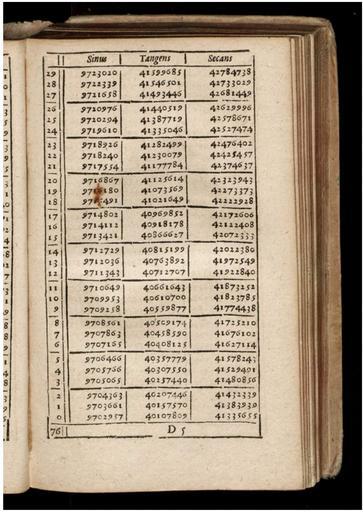 Sinus Tangens Secans
29 9723020 41599685 42784738
28 9722339 41546501 42733029
27 9721658 41493446 42681449
26 9720976 41440519 42629996
25 9720294 41387719 42578671
24 9719610 41335046 42527474
23 9718926 41282499 42476402
22 9718240 41230079 42425457
21 9717554 41177784 42374637
20 9716867 41125614 42323943
19 41073569 42273373
18 41021649 42222928
17 9714802 40969852 42172606
16 9714112 40918178 42122408
15 9713421 40866627 42072333
14 9712729 40815199 42022380
13 9712036 40763892 41972549
12 9711343 40712707 41922840
11 9710649 40661643 41873252
10 9709953 40610700 41823785
9 9709258 40559877 41774438
8 9708561 40509174 41725210
7 9707863 40458590 41676102
6 9707165 40408125 41627114
5 9706466 40357779 41578243
4 9705766 40307550 41529491
3 9705065 40257440 41480856
2 9704363 40207446 41432339
1 9703661 40157570 41383939
0 9702957 40107809 41335655
76 D 5